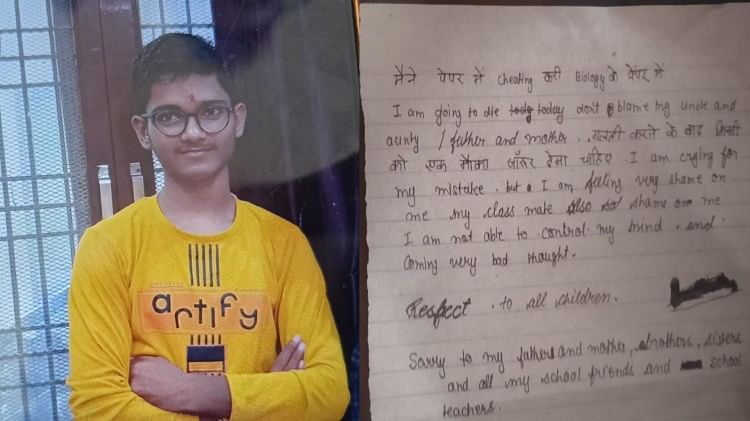 artify
मैने पेपर में Cheating करी Biology के पेपर में
I am going to die today don't blame my uncle and
aunty / father and mother . गलती करने के बाद किसी
को एक मौका देना चाहिए . I am crying for
my mistake . but I am feeling very shame on
me my class mate also shame on me
I am not able to control my mind . and
Coming very bad thought.
Respect . to all children.
Sorry to my fathers and mother, brothers, sisters
and all my school friends and school
teachers.